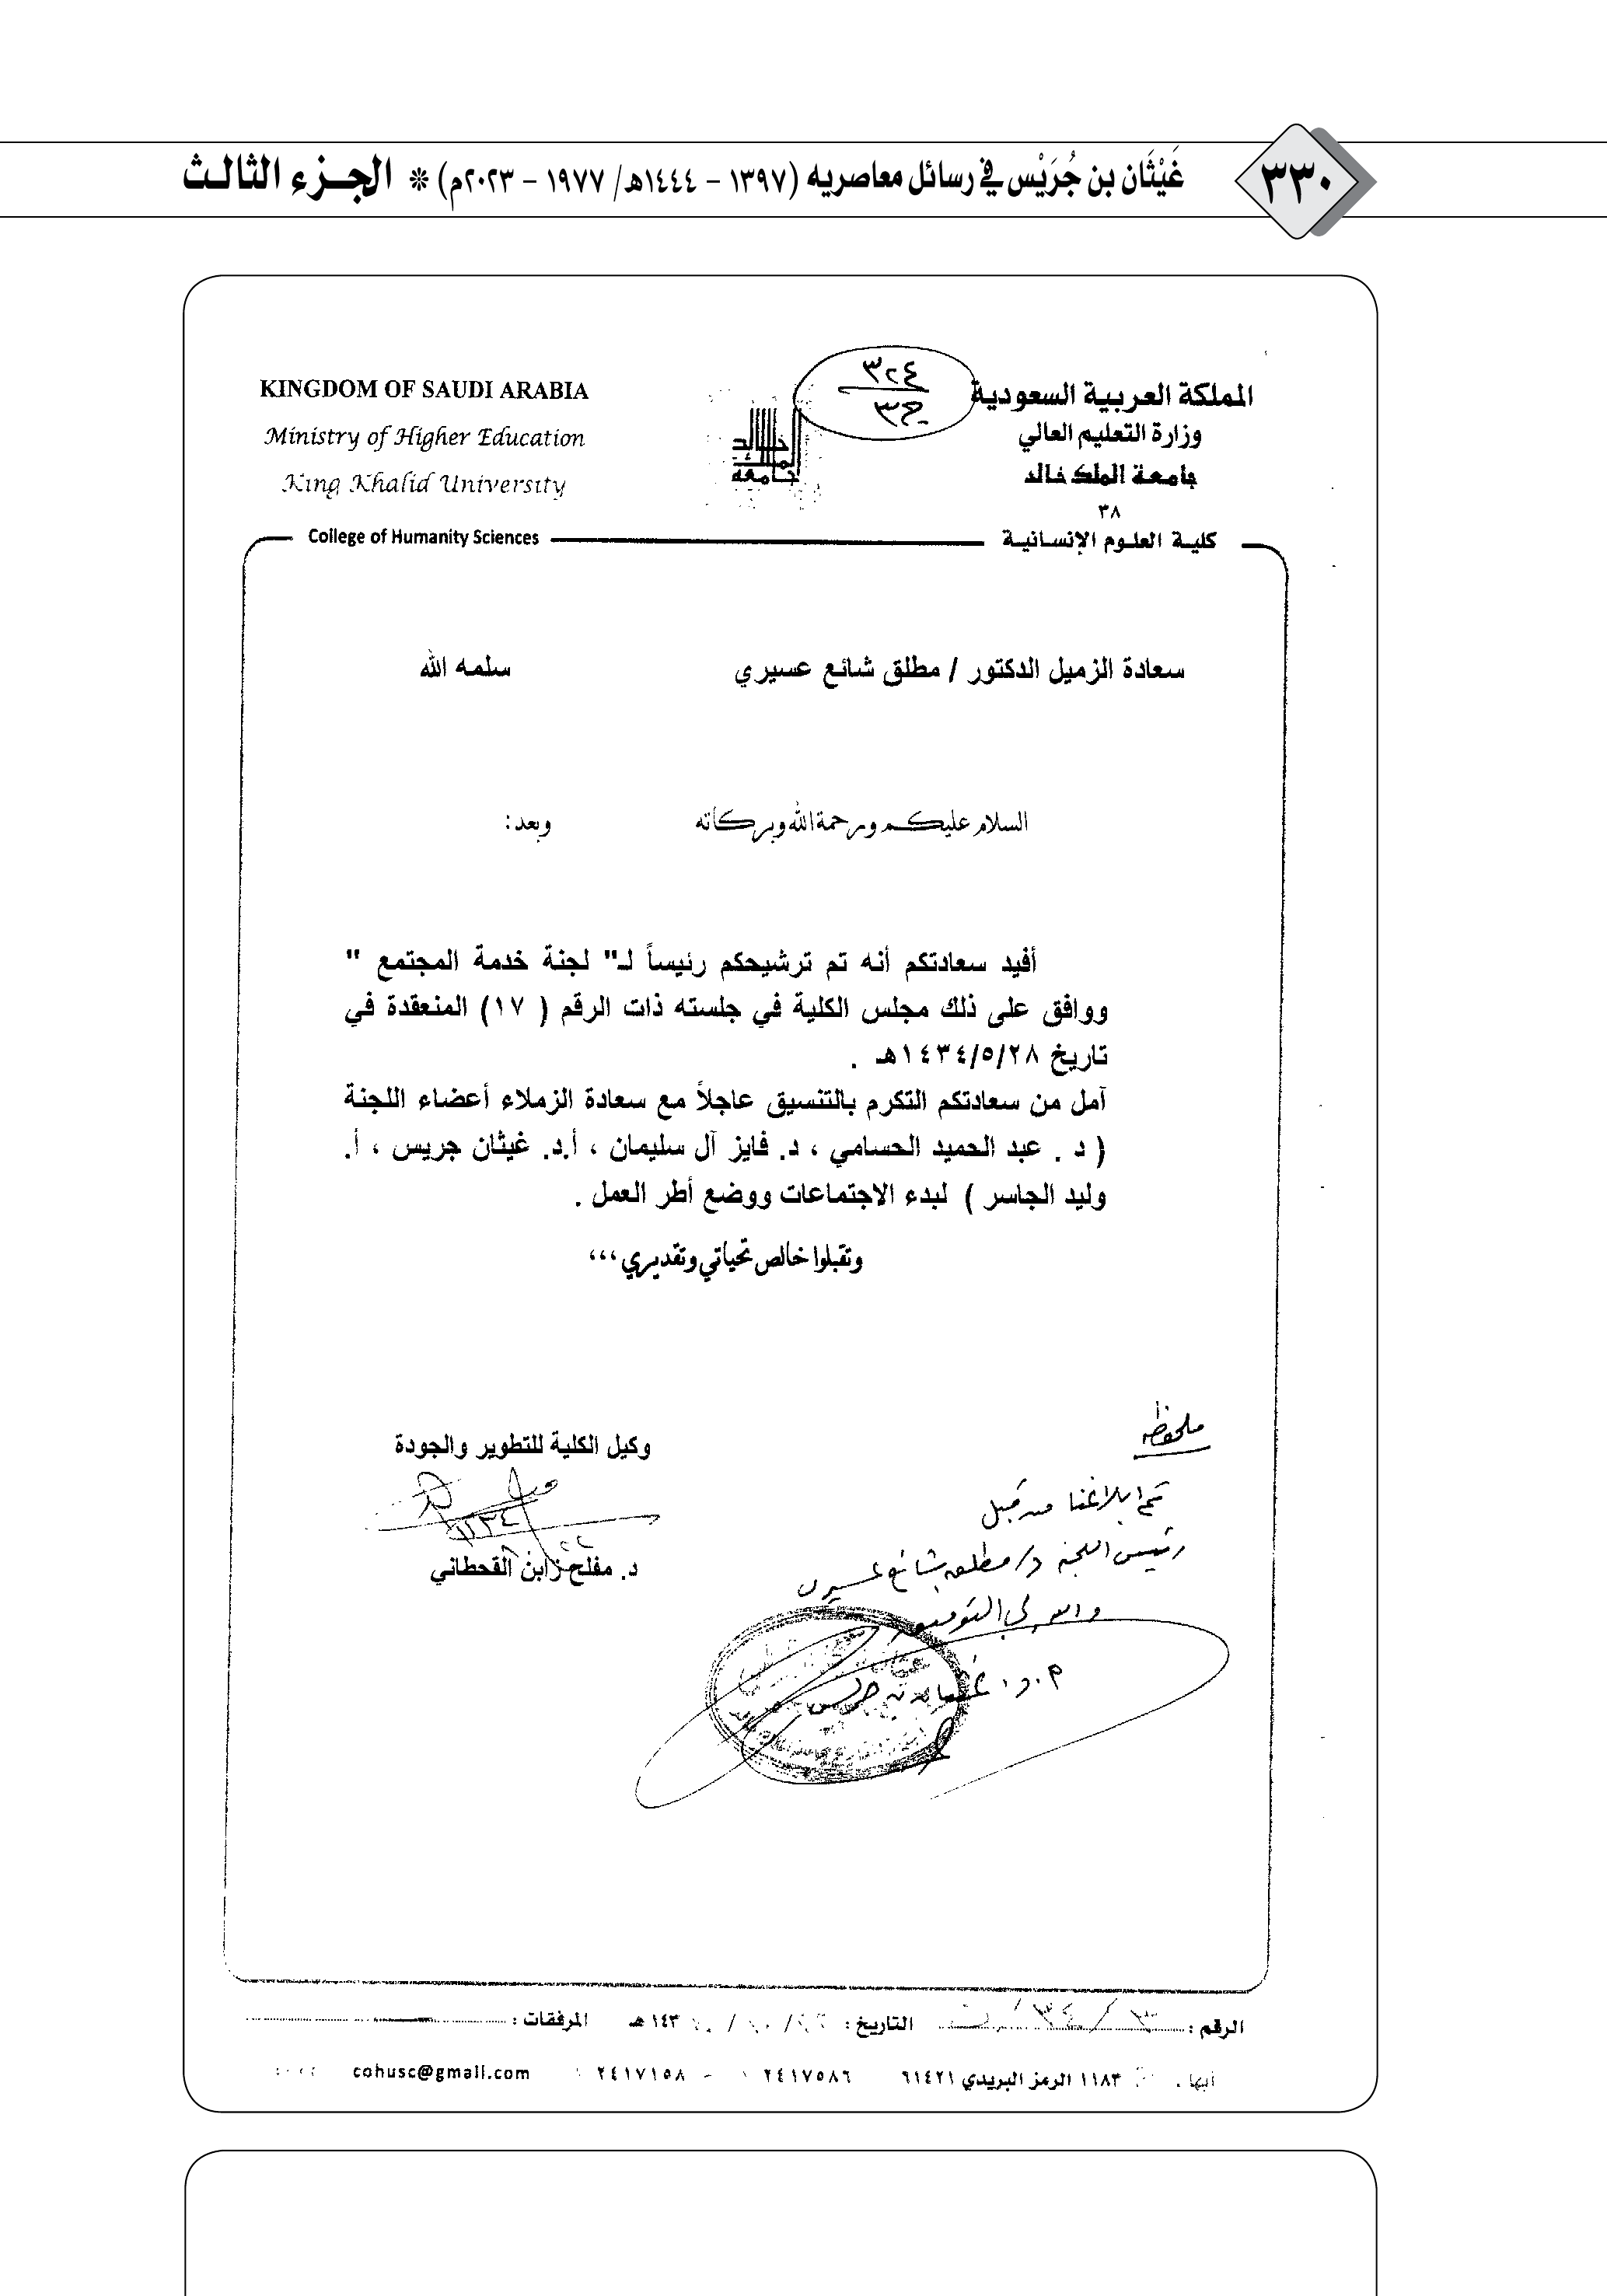 ٣٣٠
غَيْثَان بن جُرَيْس في رسائل معاصريه (١٣٩٧ – ١٤٤٤هـ/ ١٩٧٧ – ٢٠٢٣م) * الجـزء الثالـث
٣٢٤
KINGDOM OF SAUDI ARABIA
Ministry of Higher Education
King Khalid University
المملكة العربية السعودية
وزارة التعليم العالي
جامعة الملك خالد
٣٨
جامعة الملك خالد
College of Humanity Sciences
كلية العلوم الإنسانية
سعادة الزميل الدكتور / مطلق شائع عسيري سلمه الله
السلام عليكم ورحمة الله وبركاته وبعد :
أفيد سعادتكم أنه تم ترشيحكم رئيساً لـ" لجنة خدمة المجتمع "
ووافق على ذلك مجلس الكلية في جلسته ذات الرقم ( ١٧) المنعقدة في
تاريخ ١٤٣٤/٥/٢٨هـ .
آمل من سعادتكم التكرم بالتنسيق عاجلاً مع سعادة الزملاء أعضاء اللجنة
( د . عبد الحميد الحسامي ، د. فايز آل سليمان ، أ.د. غيثان جريس ، أ.
وليد الجاسر ) لبدء الاجتماعات ووضع أطر العمل .
وتقبلوا خالص تحياتي وتقديري ،،،
وكيل الكلية للتطوير والجودة
د. مفلح زابن القحطاني
ملحوظة
تم ابلاغنا من قبل
رئيس اللجنة د/ مطلق شائع عسيري
والله ولي التوفيق
أ.د. غيثان بن جريس
الرقم : التاريخ : ١٤٣ هـ المرفقات :
أبها . ١١٨٣ الرمز البريدي ٦١٤٢١ ٢٤١٧٥٨٦ - ٢٤١٧١٥٨ cohusc@gmail.com